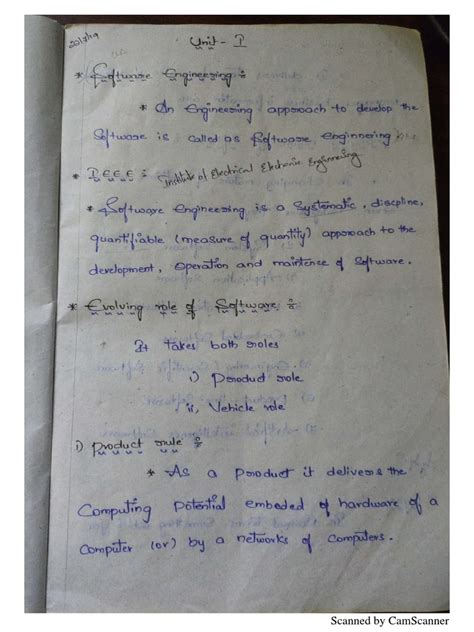 20/7/19
Unit - I
* Software Engineering :
* An Engineering approach to develop the
Software is called as Software Enginnering
* IEEE : Institute of Electrical Electronic Enginnering
* Software engineering is a systematic, discpline,
quantifiable (measure of quantity) approach to the
development, operation and maintence of Software.
* Evolving role of Software :
It takes both roles
i) Product role
ii, Vehicle role
i) Product rule :
* As a product it delivers the
Computing Potential embeded of hardware of a
Computer (or) by a networks of Computers.
Scanned by CamScanner